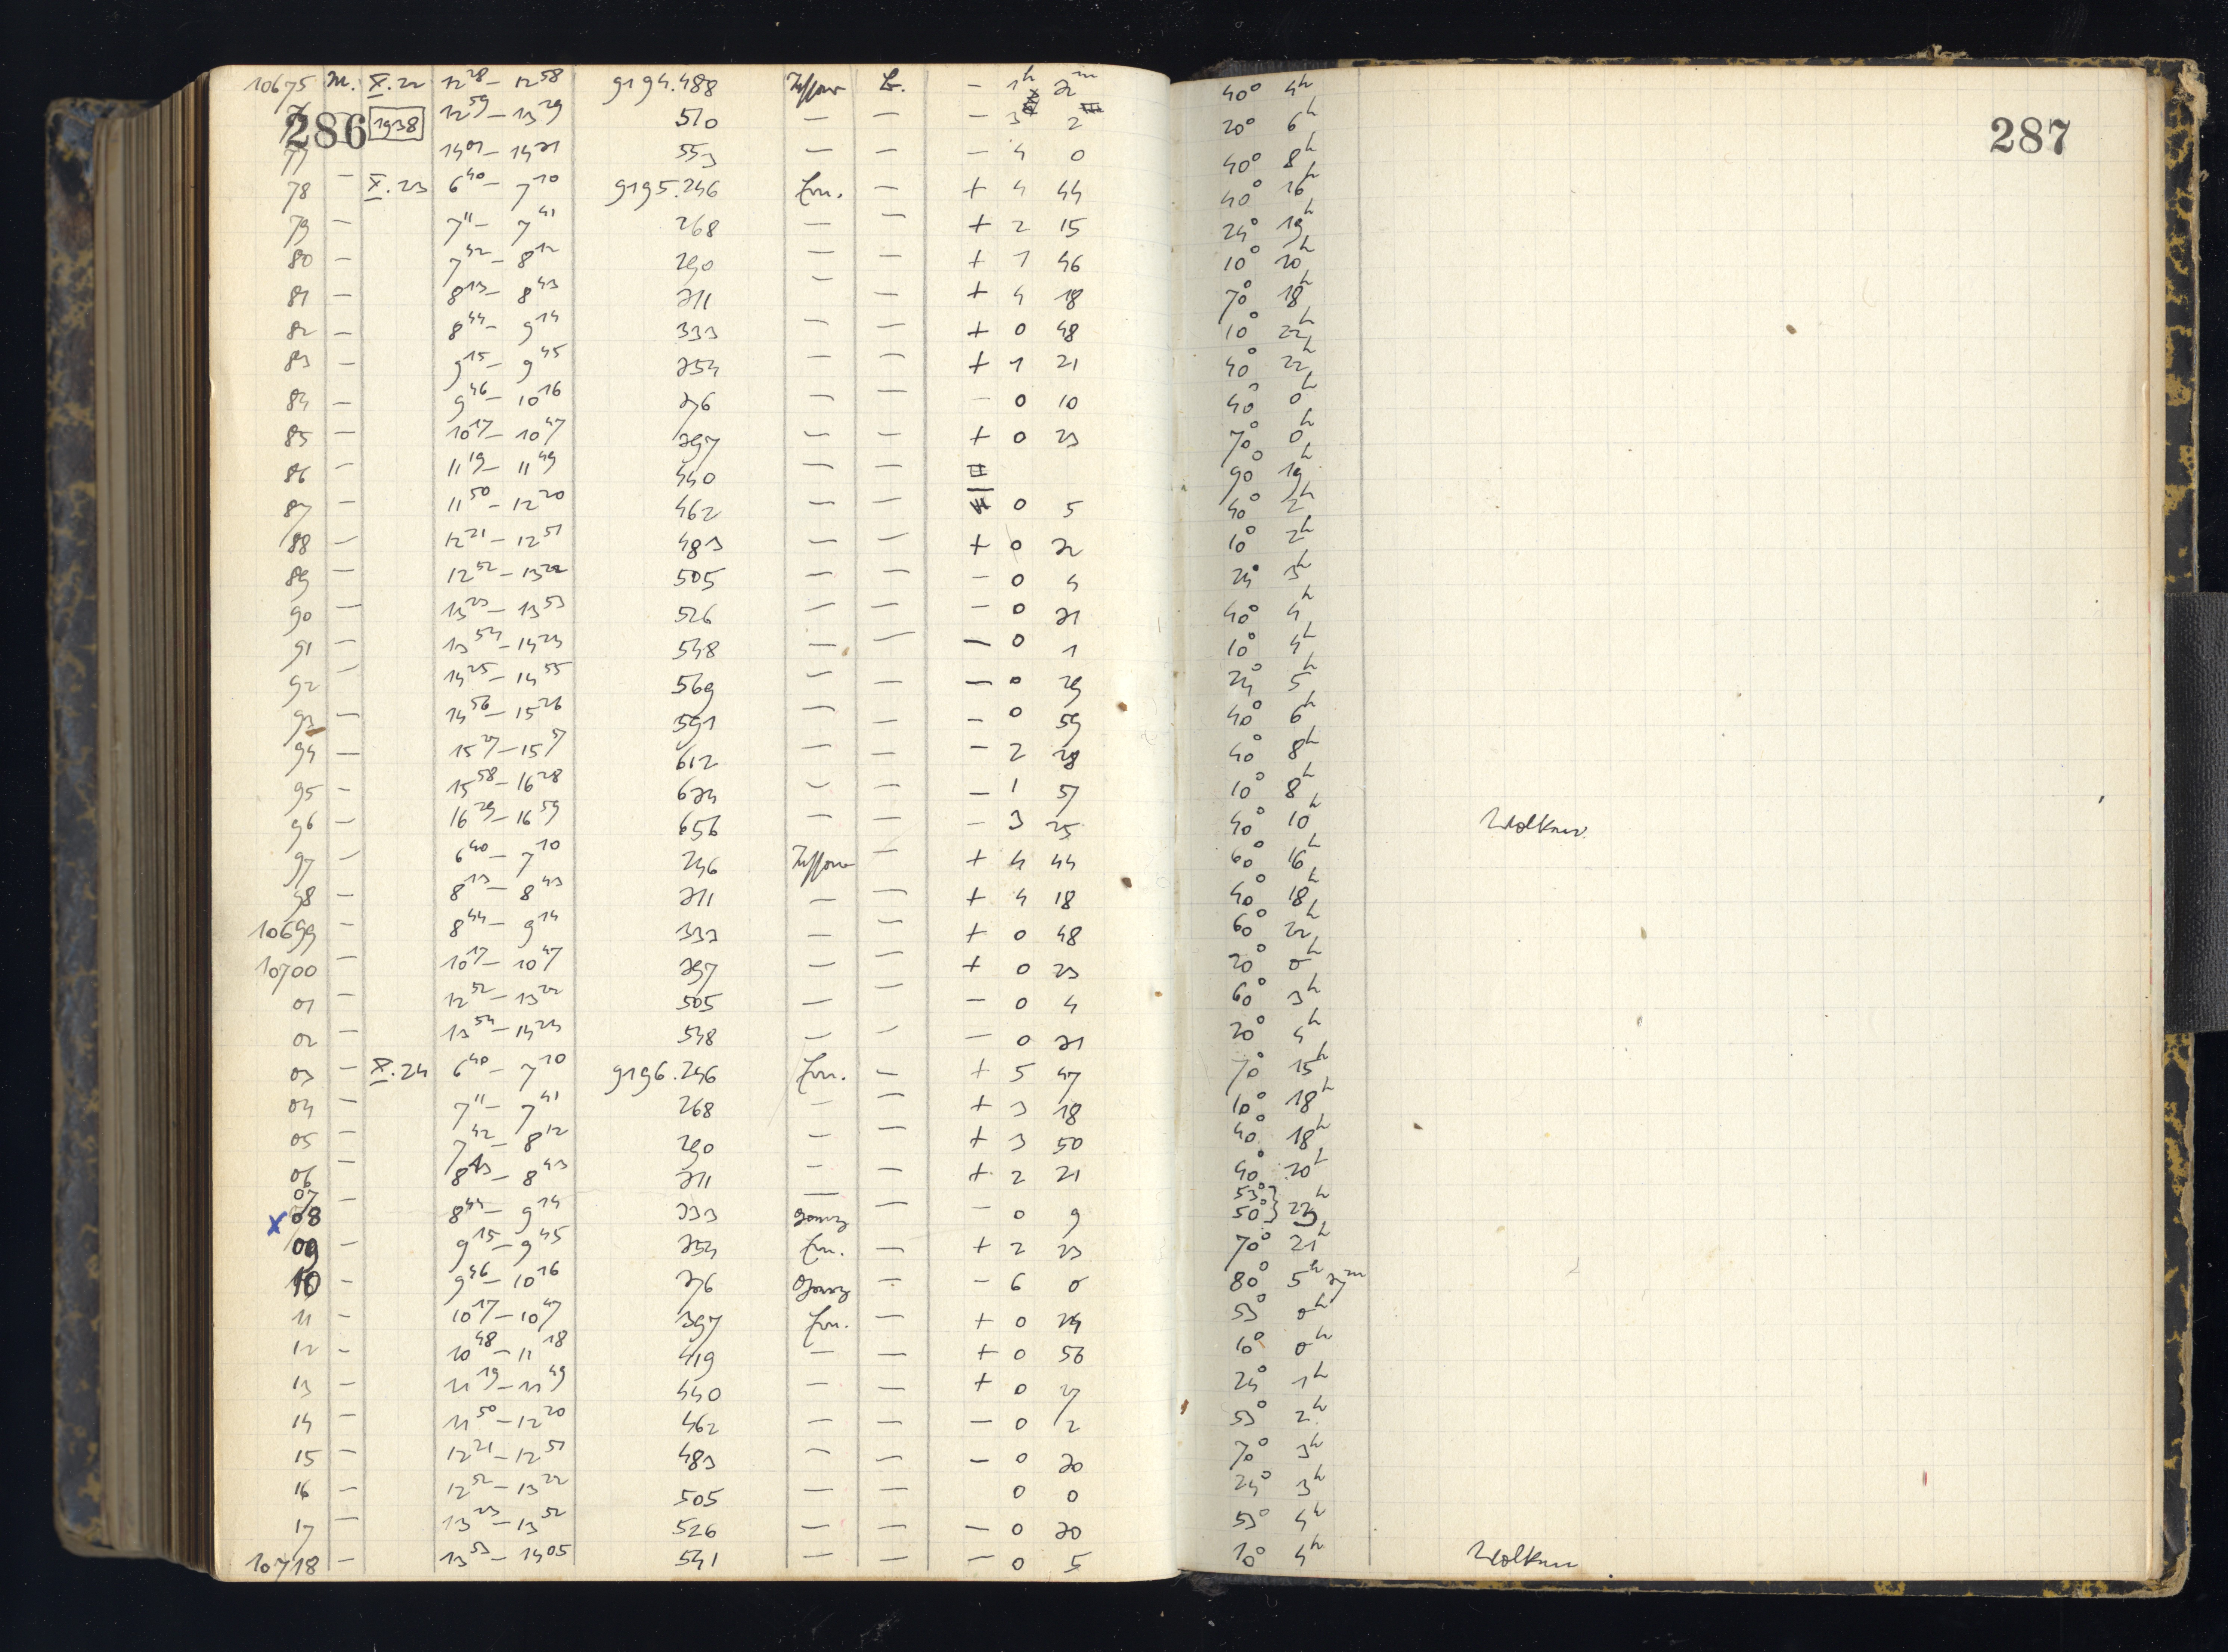 286 1938
287
10675 M. X.22 12 28 – 12 58 9194.488 – 1h 32m 40° 4h
12 59 – 13 29 510 — — – 3 2 20° 6h
77 14 01 – 14 31 553 — — – 4 0 40° 8h
78 — X.23 6 40 – 7 10 9195.246 — + 4 44 40° 16h
79 — 7 11 – 7 41 268 — — + 2 15 24° 19h
80 — 7 42 – 8 12 290 — — + 1 46 10° 20h
81 — 8 13 – 8 43 311 — — + 4 18 70° 18h
82 — 8 44 – 9 14 333 — — + 0 48 10° 22h
83 — 9 15 – 9 45 354 — — + 1 21 40° 22h
84 — 9 46 – 10 16 376 — — – 0 10 40° 0h
85 — 10 17 – 10 47 397 — — + 0 23 70° 0h
86 — 11 19 – 11 49 440 — — 90° 19h
87 — 11 50 – 12 20 462 — — – 0 5 40° 2h
88 — 12 21 – 12 51 483 — — + 0 32 10° 2h
89 — 12 52 – 13 22 505 — — – 0 4 24° 3h
90 — 13 23 – 13 53 526 — — – 0 31 40° 4h
91 — 13 54 – 14 24 548 — — – 0 1 10° 4h
92 — 14 25 – 14 55 569 — — – 0 29 24 5h
93 — 14 56 – 15 26 591 — — – 0 59 40° 6h
94 — 15 27 – 15 57 612 — — – 2 28 40° 8h
95 — 15 58 – 16 28 634 — — – 1 57 10° 8h
96 — 16 29 – 16 59 656 — — – 3 25 40° 10h Wolken.
97 — 6 40 – 7 10 246 — + 4 44 60° 16h
98 — 8 13 – 8 43 311 — — + 4 18 40° 18h
10699 — 8 44 – 9 14 333 — — + 0 48 60° 22h
10700 — 10 17 – 10 47 397 — — + 0 23 20° 0h
01 — 12 52 – 13 22 505 — — – 0 4 60° 3h
02 — 13 54 – 14 24 548 — — – 0 31 20° 4h
03 — X.24 6 40 – 7 10 9196.246 — + 5 47 70° 15h
04 — 7 11 – 7 41 268 — — + 3 18 10° 18h
05 — 7 42 – 8 12 290 — — + 3 50 40° 18h
06 — 8 13 – 8 43 311 — — + 2 21 40° 20h
07 — — 53°
x 08 8 44 – 9 14 333 — – 0 9 50° 22h
09 — 9 15 – 9 45 354 — + 2 23 70° 21h
10 — 9 46 – 10 16 376 — – 6 0 80° 5h 37m
11 — 10 17 – 10 47 397 — + 0 24 53° 0h
12 — 10 48 – 11 18 419 — — + 0 56 10° 0h
13 — 11 19 – 11 49 440 — — + 0 27 24° 1h
14 — 11 50 – 12 20 462 — — – 0 2 53° 2h
15 — 12 21 – 12 51 483 — — – 0 30 70° 3h
16 — 12 52 – 13 22 505 — — 0 0 24° 3h
17 — 13 23 – 13 52 526 — — – 0 30 53° 4h
10718 — 13 53 – 14 05 541 — — – 0 5 10° 4h Wolken